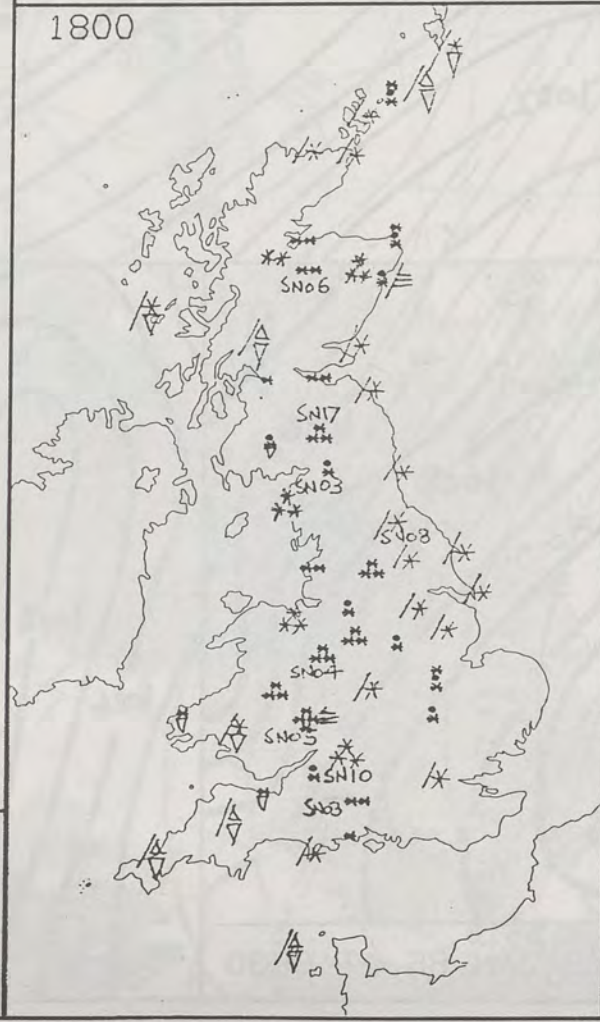 1800
SN06
SN17
SN03
SN08
SN04
SN05
SN10
SN03